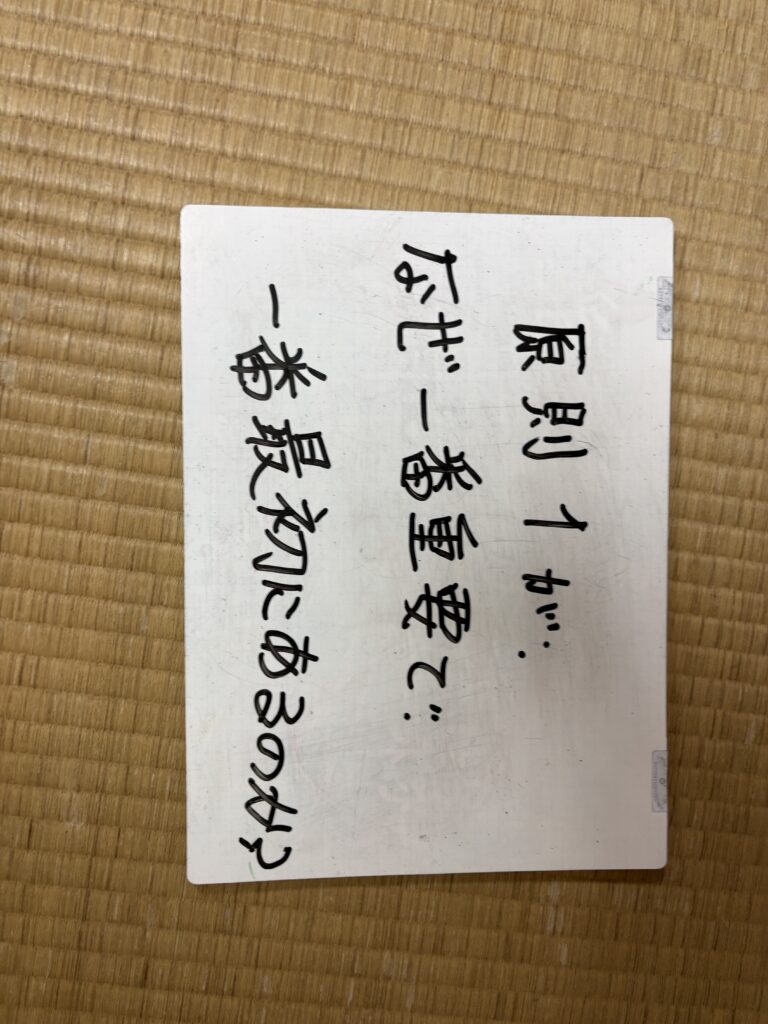 原則1が、
なぜ一番重要で、
一番最初にあるのか？